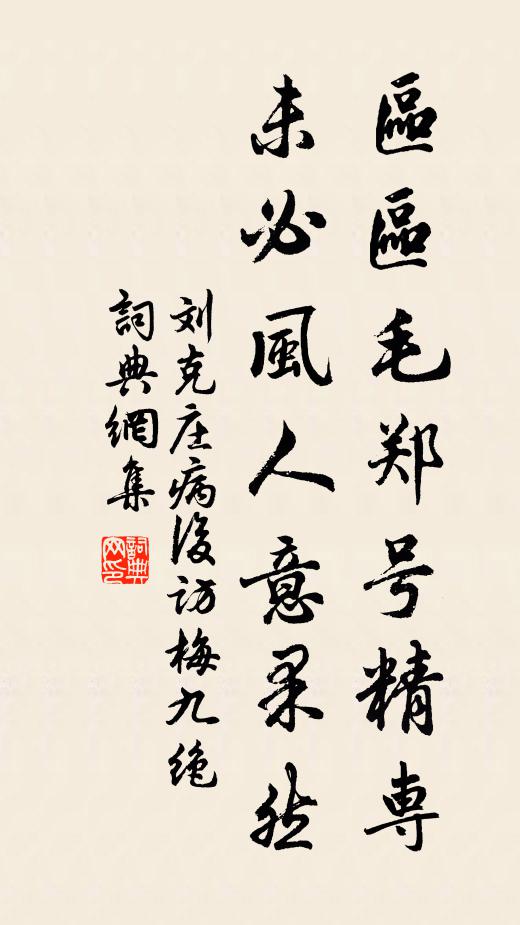 區區毛郑号精専
未必風人意果然
刘克庄病後访梅九绝
詞典網集
詞典网印